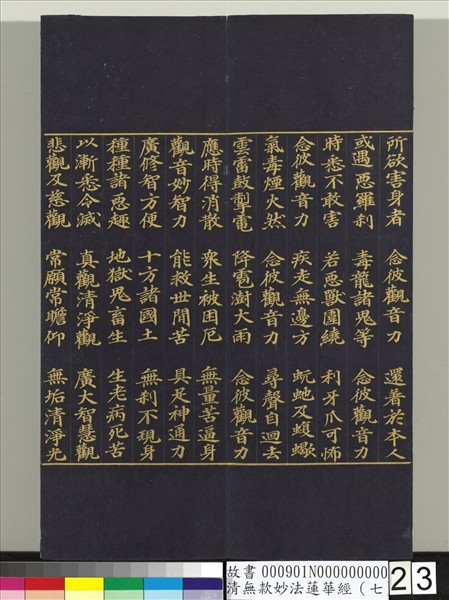 所欲害身者　念彼觀音力　還著於本人
或遇惡羅刹　毒龍諸鬼等　念彼觀音力
時悉不敢害　若惡獸圍繞　利牙爪可怖
念彼觀音力　疾走無邊方　蚖虵及蝮蠍
氣毒煙火然　念彼觀音力　尋聲自迴去
雲雷鼓掣電　降雹澍大雨　念彼觀音力
應時得消散　衆生被困厄　無量苦逼身
觀音妙智力　能救世間苦　具足神通力
廣修智方便　十方諸國土　無刹不現身
種種諸惡趣　地獄鬼畜生　生老病死苦
以漸悉令滅　真觀清淨觀　廣大智慧觀
悲觀及慈觀　常願常瞻仰　無垢清淨光
故書 000901N000000000
清無款妙法蓮華經（七
23